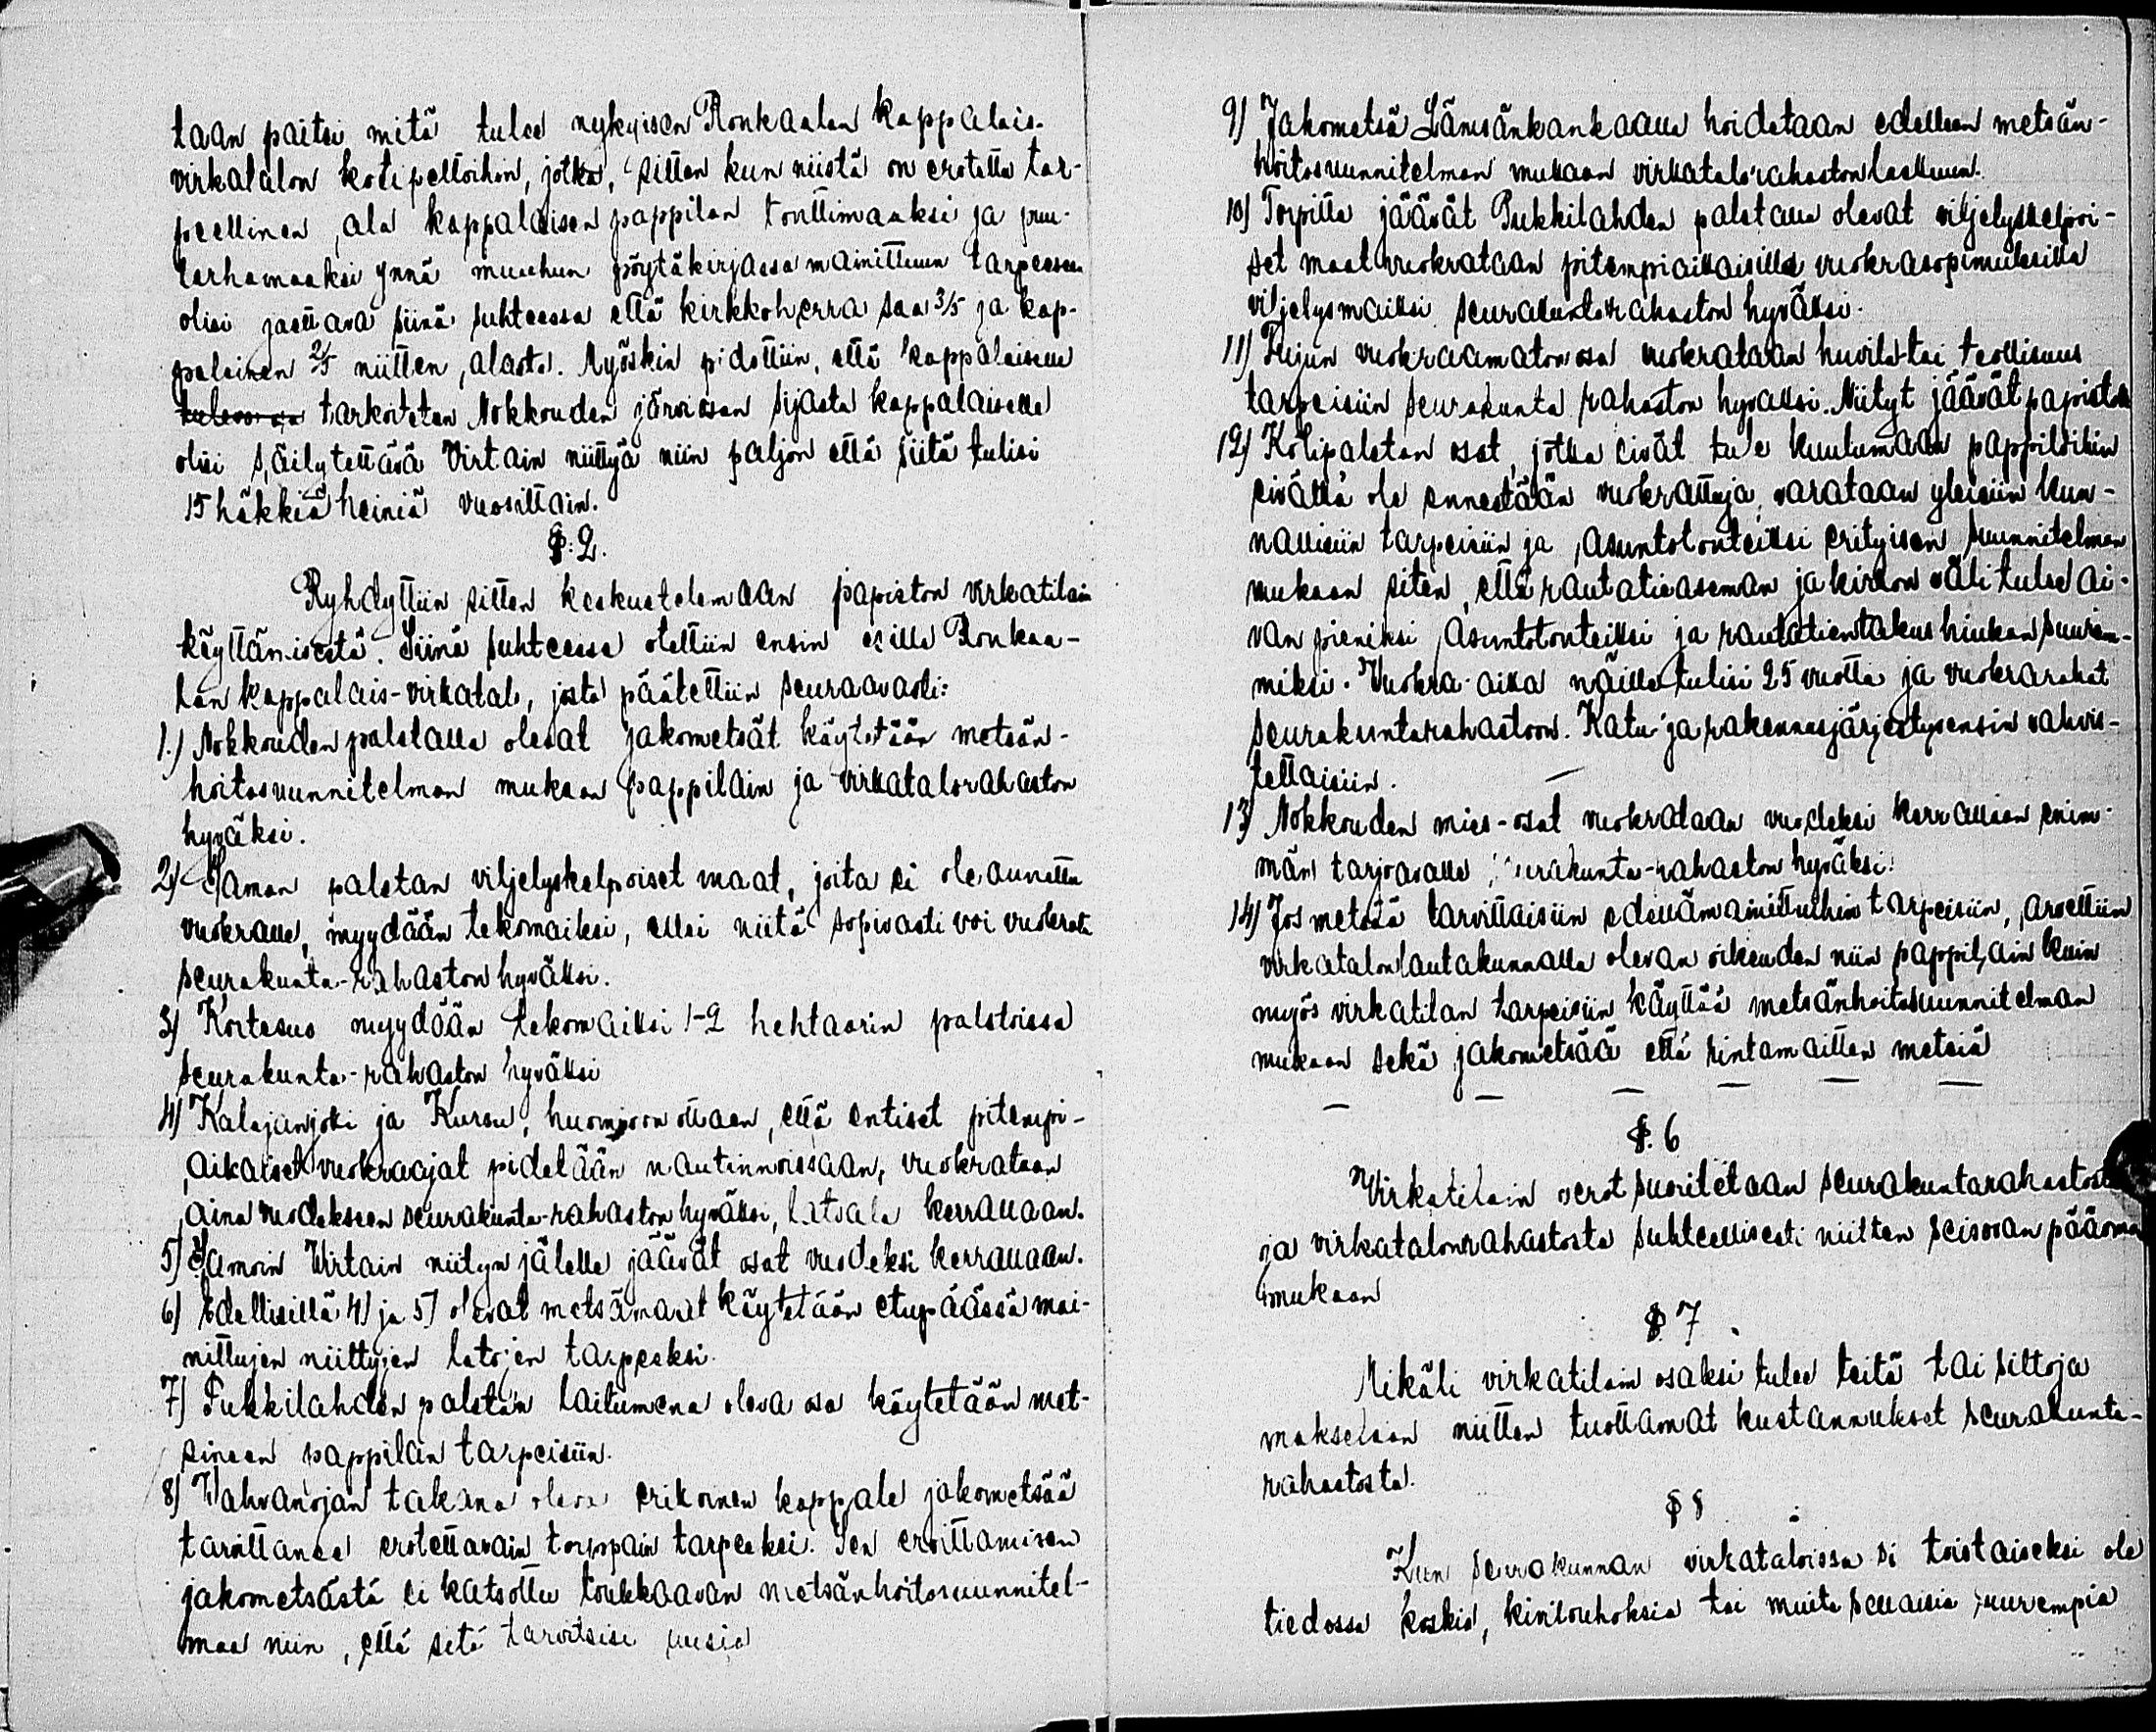 taan paitsi mitä tulee nykyisen Ronkaalan kappalais-
virkatalon kotipeltoihin, jotka, sitten kun niistä on erotettu tar-
peellinen ala kappalaisen pappilan tonttimaaksi ja puu-
tarhamaaksi ynnä muuhun pöytäkirjassa mainittuun tarpeeseen
olisi jaettava siinä suhteessa että kirkkoherra saa 3/5 ja kap-
palainen 2/5 niitten alasta. Myöskin pidettiin, että kappalaiselle
tarkoitetun Nokkouden järviosan sijasta kappalaiselle
olisi säilytettävä Virtain niittyä niin paljon että siitä tulisi
15 häkkiä heiniä vuosittain.
§. 2.
Ryhdyttiin sitten keskustelemaan papiston virkatilain
käyttämisestä. Siinä suhteessa otettiin ensin esille Ronkaa-
lan kappalais-virkatalo, josta päätettiin seuraavasti:
1.) Nokkouden palstalla olevat jakometsät käytetään metsän-
hoitosuunnitelman mukaan pappilain ja virkatalorahaston
hyväksi.
2) Saman palstan viljelyskelpoiset maat, joita ei ole annettu
vuokralle, myydään tekomaiksi, ellei niitä sopivasti voi vuokrata
seurakunta-rahaston hyväksi.
3) Kortesuo myydään tekomaiksi 1-2 hehtaarin palstoissa
seurakunta-rahaston hyväksi
4) Kalajanjoki ja Kursu, huomioon ottaen, että entiset pitempi-
aikaiset vuokraajat pidetään nautinnoissaan, vuokrataan
aina vuodekseen seurakunta-rahaston hyväksi, latoala kerrallaan.
5) Samoin Wirtain niityn jälelle jäävät osat vuodeksi kerrallaan.
6) Edellisillä 4) ja 5) olevat metsämaat käytetään etupäässä mai-
nittujen niittyjen latojen tarpeeksi.
7) Pukkilahden palstan laitumena oleva osa käytetään met-
sineen pappilan tarpeisiin.
8) Wahvanojan takana oleva erikoinen kappale jakometsää
tarvittanee erotettavain torppain tarpeeksi. Sen eroittamisen
jakometsästä ei katsottu loukkaavan metsänhoitosuunnitel-
maa niin, että sitä tarvitsisi uusia
9) Jakometsä Länsänkankaalla hoidetaan edelleen metsän-
hoitosuunnitelman mukaan virkatalorahaston laskuun.
10) Torpilta jäävät Pukkilahden palstalla olevat viljelyskelpoi-
set maat vuokrataan pitempiaikaisilla vuokrasopimuksilla
viljelysmaiksi seurakuntarahaston hyväksi.
11) Pujun vuokraamaton osa vuokrataan huvila- tai teollisuus
tarpeisiin seurakunta rahaston hyväksi. Niityt jäävät papistolle
12) Kotipalstan osat, jotka eivät tule kuulumaan pappiloihin
eivätkä ole ennestään vuokrattuja, varataan yleisiin kun-
nallisiin tarpeisiin ja asuntotonteiksi erityisen suunnitelman
mukaan siten, että rautatieaseman ja kirkon väli tulee ai-
van pieniksi asuntotonteiksi ja rautatientakus hiukan suurem-
miksi. Vuokra-aika näille tulisi 25 vuotta ja vuokrarahat
seurakuntarahastoon. Katu- ja rakennusjärjestys ensin vahvis-
tettaisiin.
13) Nokkouden mies-osat vuokrataan vuodeksi kerrallaan enim-
män tarjoavalle seurakunta-rahaston hyväksi.
14) Jos metsää tarvittaisiin edellämainittuihin tarpeisiin, arveltiin
virkatalonlautakunnalla olevan oikeuden niin pappilain kuin
myös virkatilan tarpeisiin käyttää metsänhoitosuunnitelman
mukaan sekä jakometsää että rintamaitten metsiä
§. 6
Virkatilain verot suoritetaan seurakuntarahastosta
ja virkatalonrahastosta suhteellisesti niitten seisovan pääoman
mukaan
§ 7
Mikäli virkatilain osaksi tulee teitä tai siltoja
maksetaan niitten tuottamat kustannukset seurakunta-
rahastosta.
§ 8
Kun seurakunnan virkataloissa ei toistaiseksi ole
tiedossa koskia, kivilouhoksia tai muita sellaisia suurempia